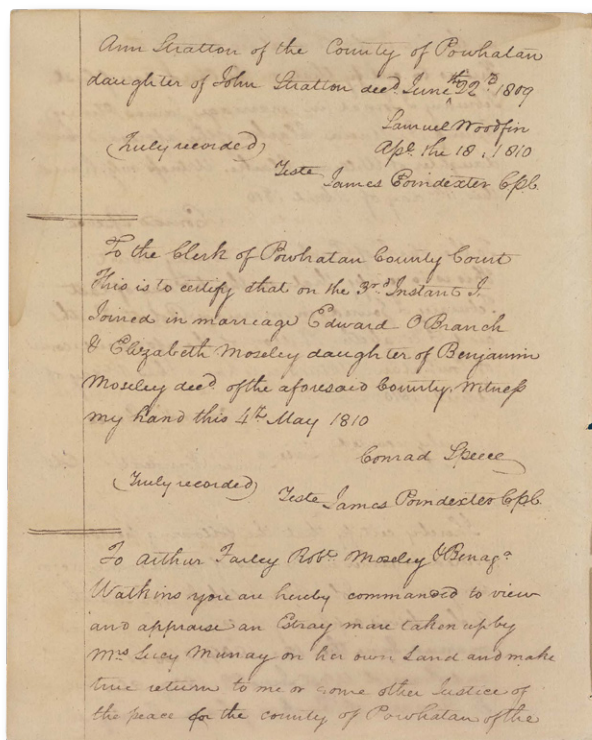 Ann Stratton of the County of Powhatan
daughter of John Stratton decd. June 22d. 1809
Samuel Woodfin
(Truly recorded) Apl. the 18, 1810
Teste James Poindexter CPC.
To the Clerk of Powhatan County Court
This is to certify that on the 3rd Instant I
Joined in marreage Edward OBranch
& Elizabeth Moseley daughter of Benjamin
Moseley decd. of the aforesaid County. Witness
my hand this 4th. May 1810
Conrad Speece
(Truly recorded)
Teste James Poindexter CPC.
To Arthur Farley Robt. Moseley & Benaga.
Watkins you are hereby commanded to view
and appraise an Estray mare taken up by
Mrs Lucy Murray on her own Land and make
true return to me or some other Justice of
the peace for the county of Powhatan of the